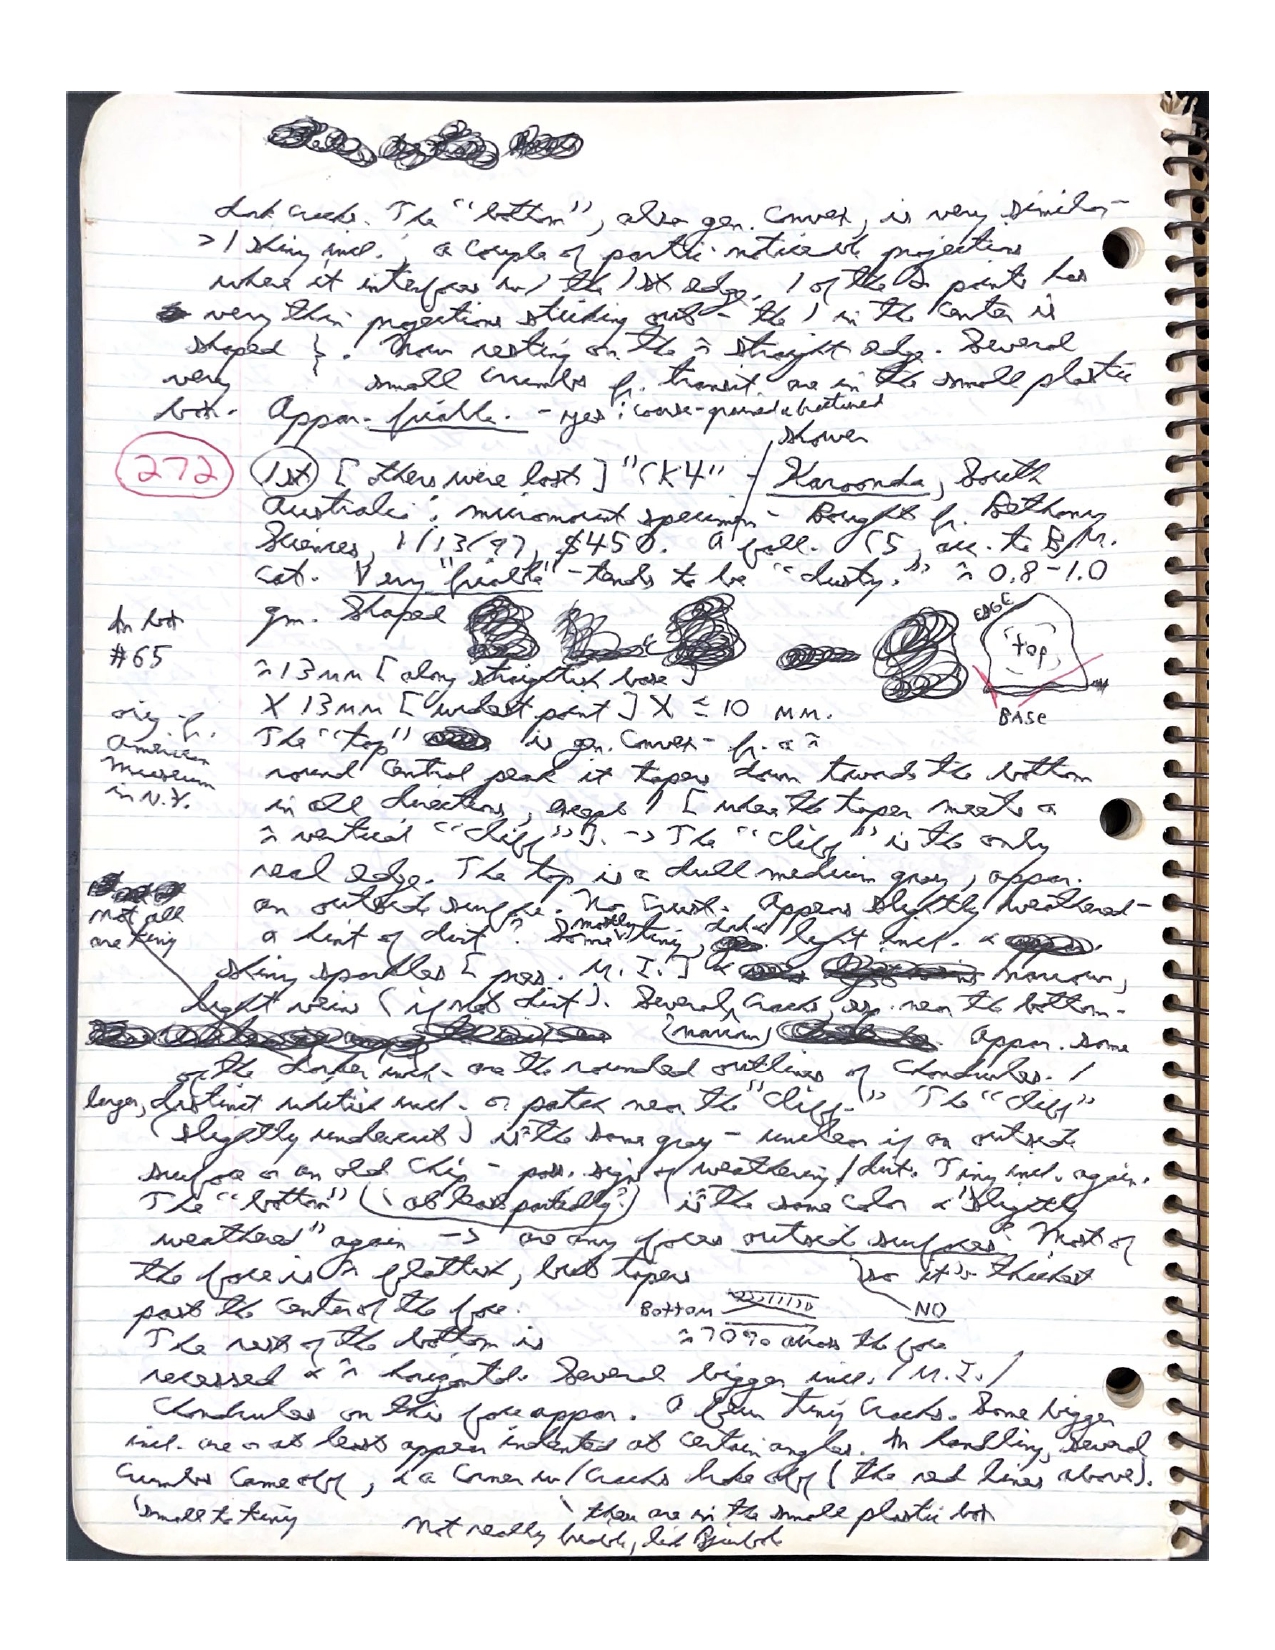 dark cracks. The "bottom", also gen. convex, is very similar-
> 1 shiny incl.; a couple of partic. noticeable projections
where it interfaces w/ the 1st edge. 1 of the 2 points has
very thin projections sticking out - the 1 in the center is
shaped }. Now resting on the ≈ straight edge. Several
very small crumbs fr. transit are in the small plastic
box. Appar. friable. - yes; coarse-grained & fractured
shower
272 1st [others were lost] "CK4" - Karoonda, South
Australia; micromount specimen - Bought fr. Bethany
Sciences, 1/13/97, $450. A fall. C5, acc. to B/M.
cat. Very "friable" - tends to be "dusty." ≈ 0.8-1.0
gm. Shaped
In box
#65
EDGE
top
BASE
≈ 13 mm [along straightish base]
X 13 mm [widest point] X ≤ 10 mm.
orig. fr.
American
Museum
in N.Y.
The "top" is gen. convex - fr. a ≈
round central peak it tapers down towards the bottom
in all directions, except 1 [where the taper meets a
≈ vertical "cliff"]. -> The "cliff" is the only
real edge. The top is a dull medium gray, appar.
an outside surface. No crust. Appears slightly weathered -
not all
are tiny
a hint of dirt? Some mostly tiny, dark & light incl. &
shiny sparkles [pos. M.I.] & narrow,
light veins (if not dirt). Several cracks, esp. near the bottom -
(narrow) Appar. some
of the darker incl. are the rounded outlines of chondrules. 1
larger, distinct whitish incl. or patch near the "cliff." The "cliff"
(slightly undercut) is ≈ the same gray - unclear if an outside
surface or an old chip - poss. sign of weathering/dirt. Tiny incl. again.
The "bottom" (at least partially?) is ≈ the same color & "slightly
weathered" again -> are any faces outside surfaces? Most of
the face is ≈ flattish, but tapers so it's thickest
past the center of the face. Bottom NO
The rest of the bottom is ≈ 70% across the face
recessed & ≈ horizontal. Several bigger incl./M.I./
chondrules on this face appar. A few tiny cracks. Some bigger
incl. are or at least appear indented at certain angles. In handling, several
crumbs came off, & a corner w/ cracks broke off (the red lines above).
small to tiny
these are in the small plastic box
Not really breakable, like